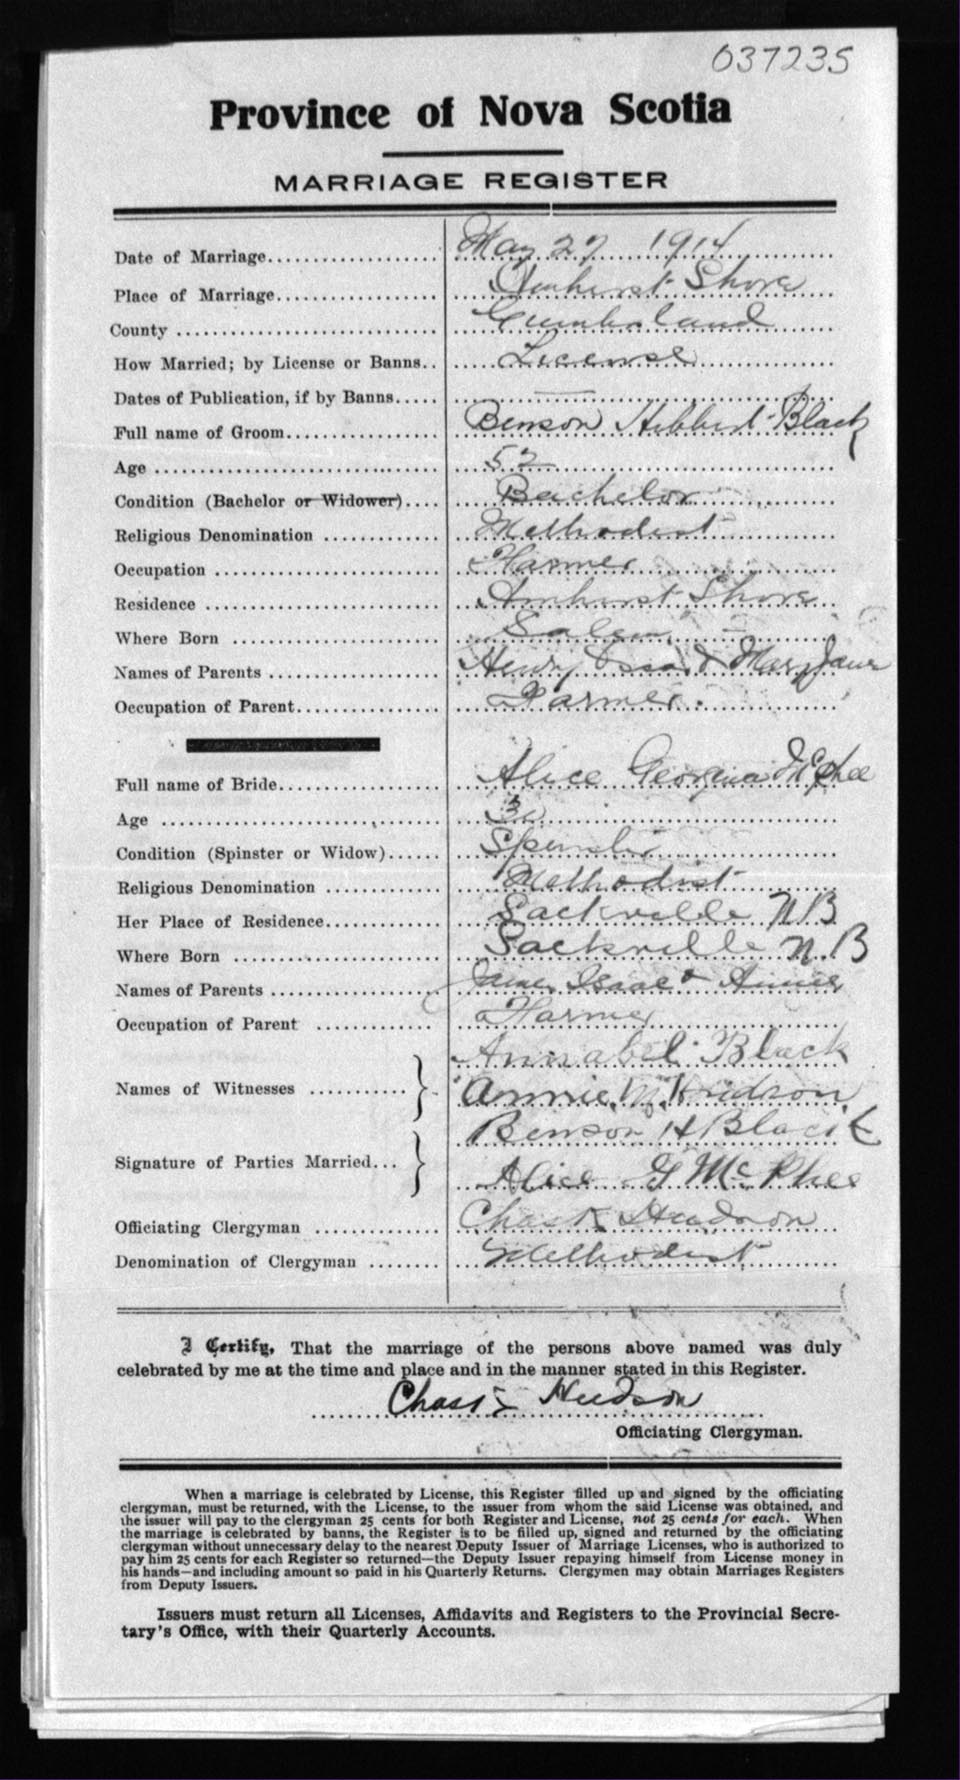 037235
Province of Nova Scotia
MARRIAGE REGISTER
Date of Marriage.................... May 27 1914
Place of Marriage................... Amherst Shore
County ........................... Cumberland
How Married; by License or Banns.. License
Dates of Publication, if by Banns..... —
Full name of Groom................. Benson Hibbert Black
Age ............................. 52
Condition (Bachelor or Widower).... Bachelor
Religious Denomination ............ Methodist
Occupation ....................... Farmer
Residence ........................ Amherst Shore
Where Born ..................... Salem
Names of Parents ................. Henry & Mary Jane
Occupation of Parent............... Farmer.
Full name of Bride................. Alice Georgina McPhee
Age ............................
Condition (Spinster or Widow)...... Spinster
Religious Denomination ............ Methodist
Her Place of Residence............. Sackville N B
Where Born ..................... Sackville N.B
Names of Parents ................. Isaac &
Occupation of Parent ............ Farmer
Annabel Black
Names of Witnesses ........... } Annie M. Hudson
Benson H Black
Signature of Parties Married... }
Alice G McPhee
Officiating Clergyman ............. Chas Hudson
Denomination of Clergyman ........ Methodist
I Certify, That the marriage of the persons above named was duly
celebrated by me at the time and place and in the manner stated in this Register.
Chas Hudson
Officiating Clergyman.
When a marriage is celebrated by License, this Register filled up and signed by the officiating
clergyman, must be returned, with the License, to the issuer from whom the said License was obtained, and
the issuer will pay to the clergyman 25 cents for both Register and License, not 25 cents for each. When
the marriage is celebrated by banns, the Register is to be filled up, signed and returned by the officiating
clergyman without unnecessary delay to the nearest Deputy Issuer of Marriage Licenses, who is authorized to
pay him 25 cents for each Register so returned—the Deputy Issuer repaying himself from License money in
his hands—and including amount so paid in his Quarterly Returns. Clergymen may obtain Marriages Registers
from Deputy Issuers.
Issuers must return all Licenses, Affidavits and Registers to the Provincial Secre-
tary's Office, with their Quarterly Accounts.